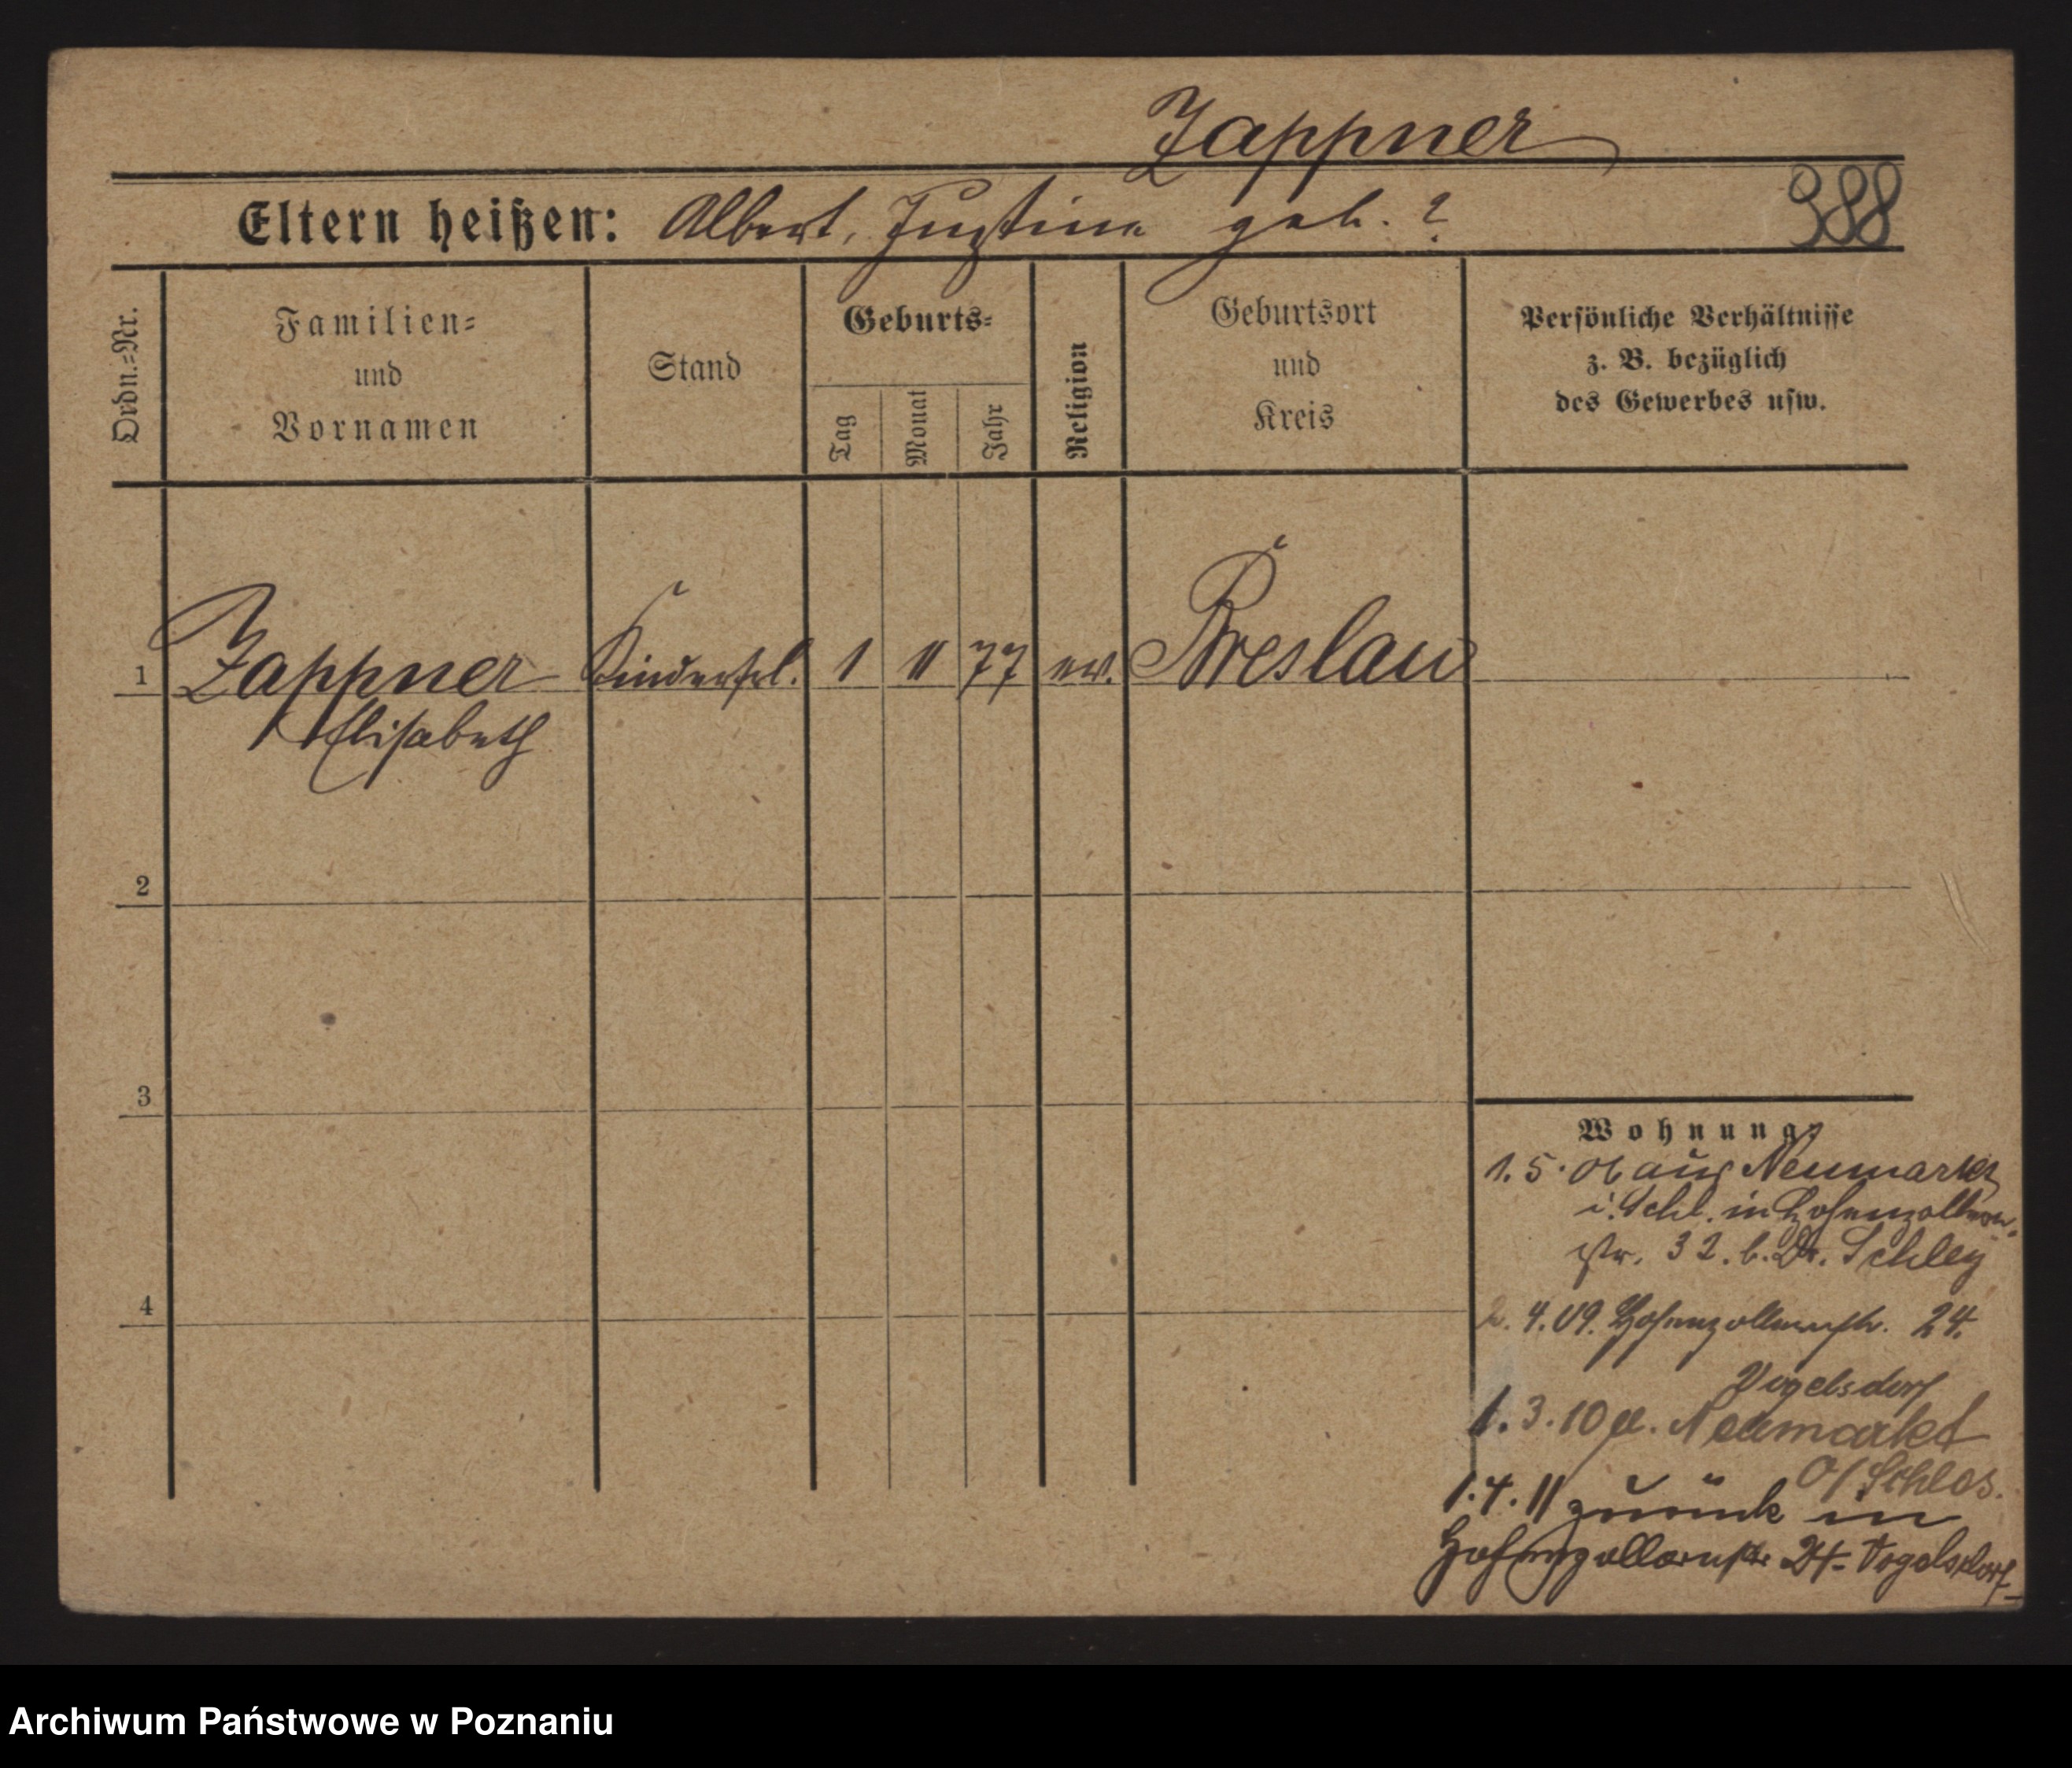 Zappner
Eltern heißen: Albert, Justine geb. ?
388
Ordn.=Nr.
Familien=
und
Vornamen
Stand
Geburts=
Tag
Monat
Jahr
Religion
Geburtsort
und
Kreis
Persönliche Verhältnisse
z. B. bezüglich
des Gewerbes usw.
1 Zappner Kinderfrl. 1 11 77 ev. Breslau
Elisabeth
2
3
4
Wohnung
1. 5. 06 aus Neumarkt
i. Schl. in Hohenzollern
str. 32. b. Dr. Schley
2. 4. 09. Hohenzollernstr. 24.
Vogelsdorf
1. 3. 10 a. Neumarkt
O/Schles.
1. 4. 11 zurück in
Hohenzollernstr 24. Vogelsdorf
Archiwum Państwowe w Poznaniu